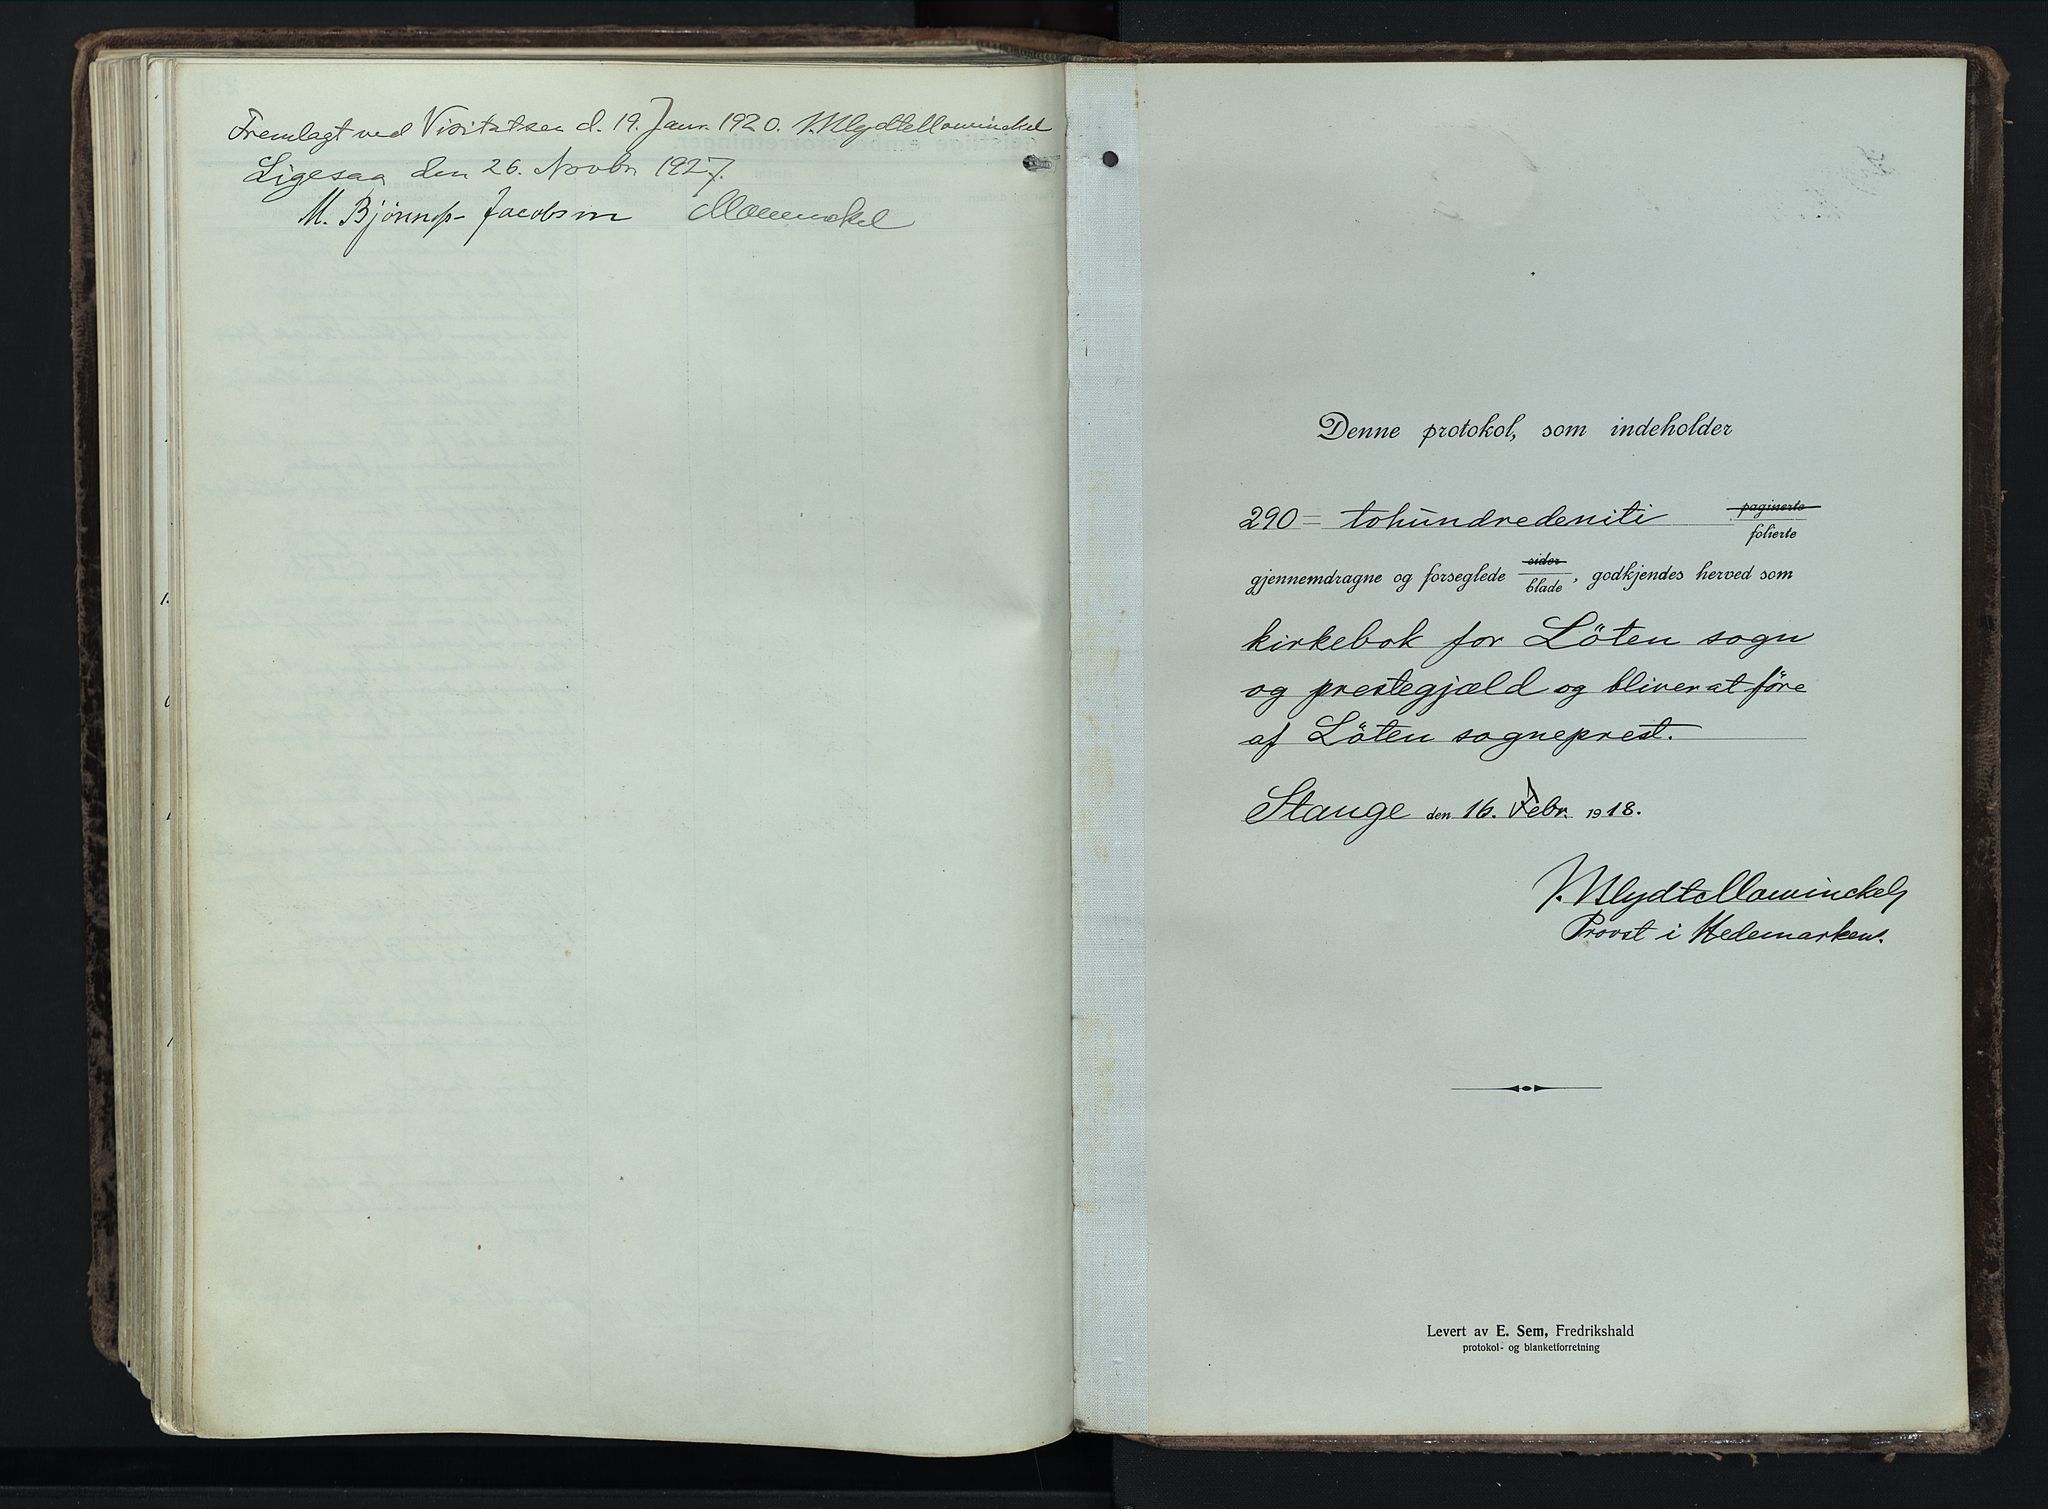 Fremlagt ved Visitatsen d. 19. Janr. 1920. Mowinckel
Ligesaa den 26. Novbr 1927.
M. Bjønnes-Jacobsen Mowinckel
Denne protokol, som indeholder
290 = tohundredeniti paginerte
folierte
gjennemdragne og forseglede sider
blade, godkjendes herved som
kirkebok for Löten sogn
og prestegjæld og bliver at före
af Löten sogneprest.
Stange den 16. Febr. 1918.
Mowinckel
Provst i Hedemarken.
Levert av E. Sem, Fredrikshald
protokol- og blanketforretning